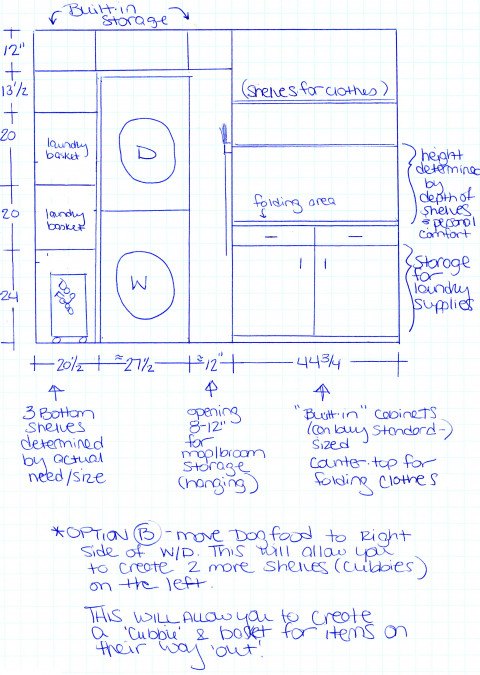 Built-in
Storage
12"
13½
20
20
24
(Shelves for clothes)
laundry
basket
D
laundry
basket
folding area
W
height
determined
by
depth of
shelves
& personal
comfort
Storage
for
laundry
supplies
20½
≈ 27½
≈ 12"
44¾
3 Bottom
shelves
determined
by actual
need/size
opening
8-12"
for
mop/broom
storage
(hanging)
"Built-in" Cabinets
(can buy Standard-)
sized
counter-top for
folding clothes
*OPTION B - move Dog food to Right
side of W/D. This will allow you
to create 2 more shelves (cubbies)
on the left.
THIS WILL ALLOW you to create
a 'cubbie' & basket for items on
their way 'out'.